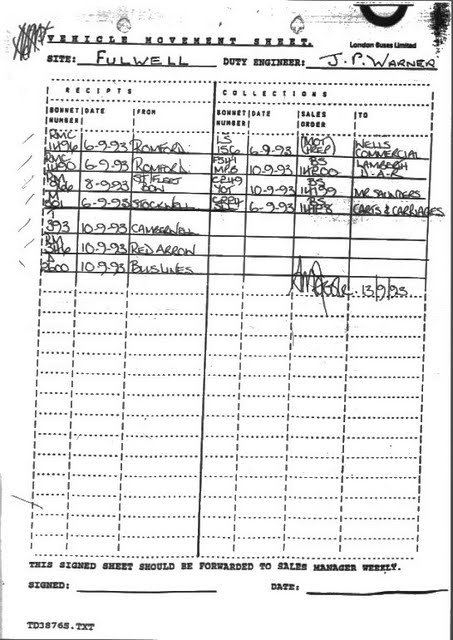 VEHICLE MOVEMENT SHEET.
London Buses Limited
SITE: FULWELL DUTY ENGINEER: J. P. WARNER
RECEIPTS COLLECTIONS
BONNET NUMBER DATE FROM BONNET NUMBER DATE SALES ORDER TO
RMC 1496 6-9-93 ROMFORD LS 156 6-9-93 (MOT PREP) WELLS COMMERCIAL
RMC 6-9-93 ROMFORD 10-9-93 BS 14200 LAMBETH
RM 8-9-93 10-9-93 BS MR SAUNDERS
6-9-93 STOCKWELL 6-9-93 BS CARTS & CARRIAGES
T 393 10-9-93 CAMBERWELL
RM 10-9-93 RED ARROW
D 2600 10-9-93 BUSLINES
13/9/93
THIS SIGNED SHEET SHOULD BE FORWARDED TO SALES MANAGER WEEKLY.
SIGNED: DATE:
TD38765.TXT